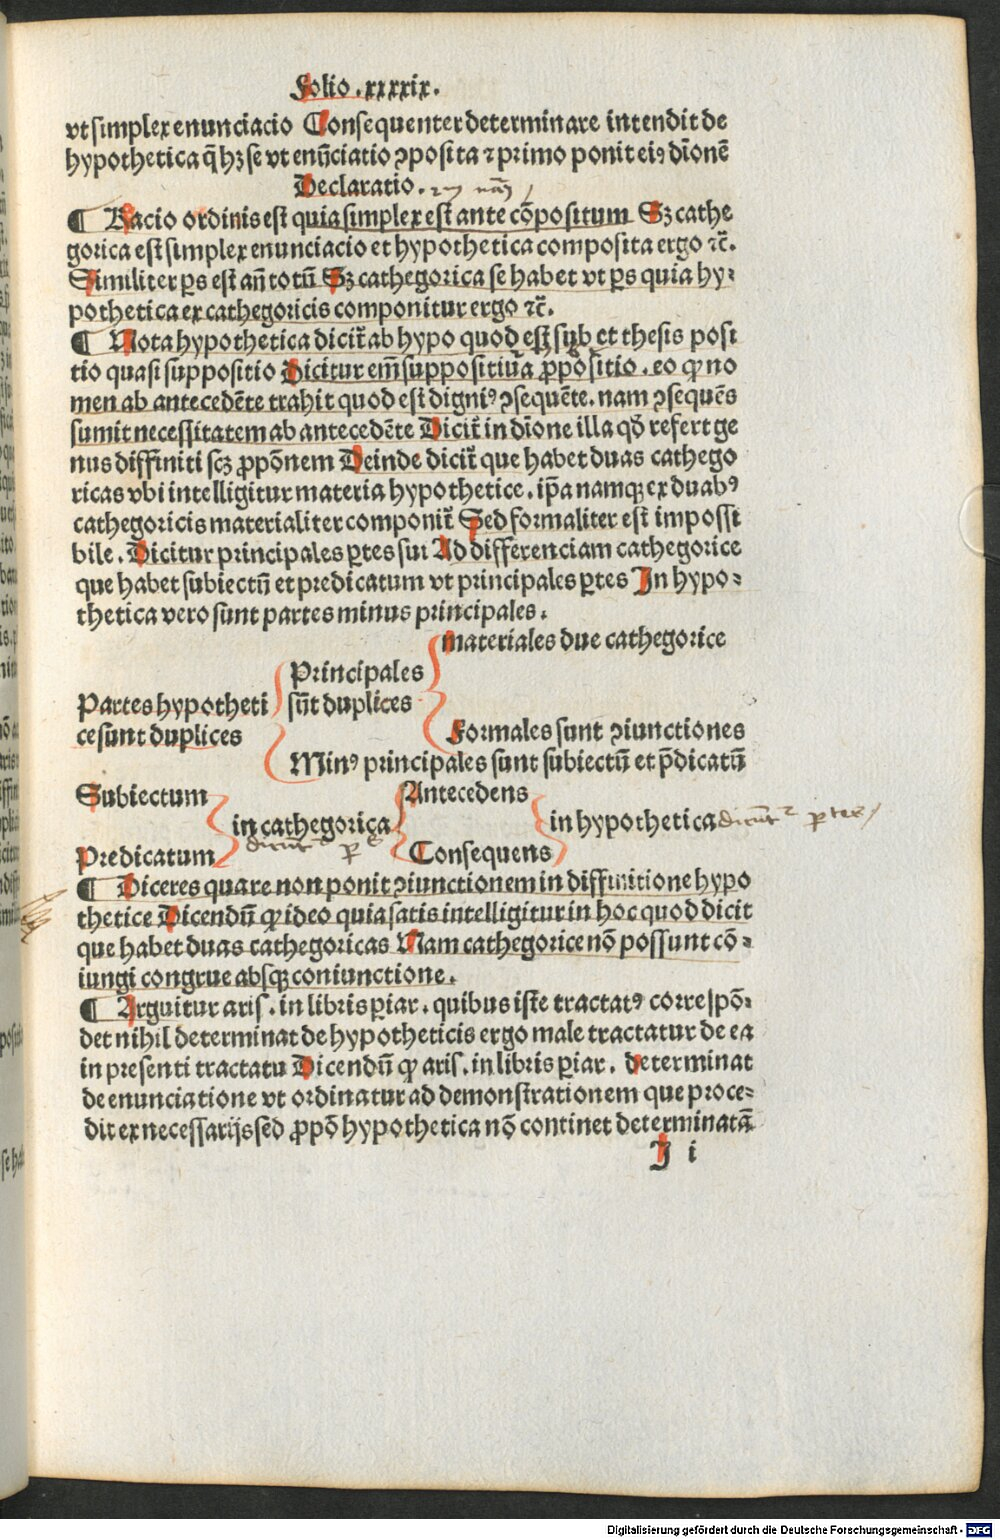 Folio .xxxxix.
vt simplex enunciacio Consequenter determinare intendit de
hypothetica q̄ hꝫ se vt enūciatio ꝯposita ⁊ primo ponit eiꝰ diōnē
Declaratio.
¶ Racio ordinis est quia simplex est ante cōpositum Sꝫ cathe
gorica est simplex enunciacio et hypothetica composita ergo ⁊c̄.
Similiter ꝑs est an̄ totū Sꝫ cathegorica se habet vt ꝑs quia hy-
pothetica ex cathegoricis componitur ergo ⁊c̄.
¶ Nota hypothetica dicit̃ ab hypo quod est sub et thesis posi
tio quasi suppositio Dicitur em̄ suppositiua ꝓpositio. eo ꝙ no
men ab antecedēte trahit quod est digniꝰ ꝯsequēte. nam ꝯsequēs
sumit necessitatem ab antecedēte Dicit̃ in diōne illa qd̄ refert ge
nus diffiniti scꝫ ꝓpōnem Deinde dicit̃ que habet duas cathego
ricas vbi intelligitur materia hypothetice. ip̄a namqꝫ ex duabꝰ
cathegoricis materialiter componit̃ Sed formaliter est impossi
bile. Dicitur principales ꝑtes sui Ad differenciam cathegorice
que habet subiectū et predicatum vt principales ꝑtes In hypo-
thetica vero sunt partes minus principales.
materiales due cathegorice
Principales
Partes hypotheti sūt duplices
ce sunt duplices Formales sunt ꝯiunctiones
Minꝰ principales sunt subiectū et p̄dicatū
Subiectum Antecedens
in cathegorica in hypothetica dicūtꝰ ꝑtes
dicūtꝰ ꝑ
Predicatum Consequens
¶ Diceres quare non ponit ꝯiunctionem in diffinitione hypo
thetice Dicendū ꝙ ideo quia satis intelligitur in hoc quod dicit
que habet duas cathegoricas Nam cathegorice nō possunt cō-
iungi congrue absqꝫ coniunctione.
¶ Arguitur aris. in libris ꝑiar. quibus iste tractatꝰ correspō-
det nihil determinat de hypotheticis ergo male tractatur de ea
in presenti tractatu Dicendū ꝙ aris. in libris ꝑiar. determinat
de enunciatione vt ordinatur ad demonstrationem que proce-
dit ex necessarijs sed ꝓpō hypothetica nō continet determinatā
I i
Digitalisierung gefördert durch die Deutsche Forschungsgemeinschaft - DFG